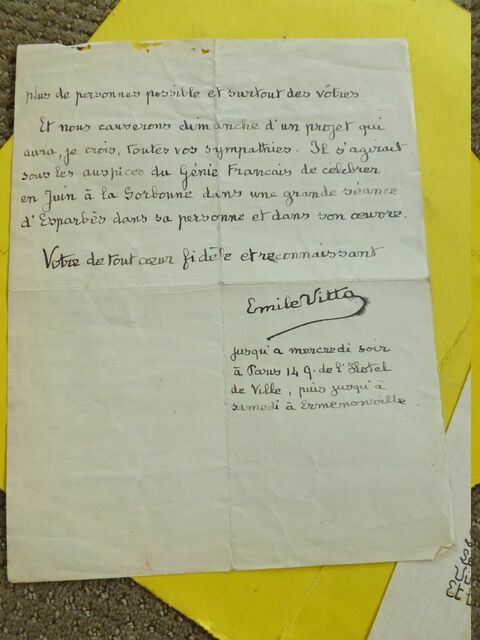 plus de personnes possible et surtout des vôtres.
Et nous causerons dimanche d'un projet qui
aura, je crois, toutes vos sympathies. Il s'agirait
sous les auspices du Génie Français de célébrer
en Juin à la Sorbonne dans une grande séance
d'Esparbès dans sa personne et dans son œuvre.
Votre de tout cœur fidèle et reconnaissant
Emile Vitta
jusqu'à mercredi soir
à Paris 14 q. de l'Hotel
de Ville, puis jusqu'à
samedi à Ermenonville.